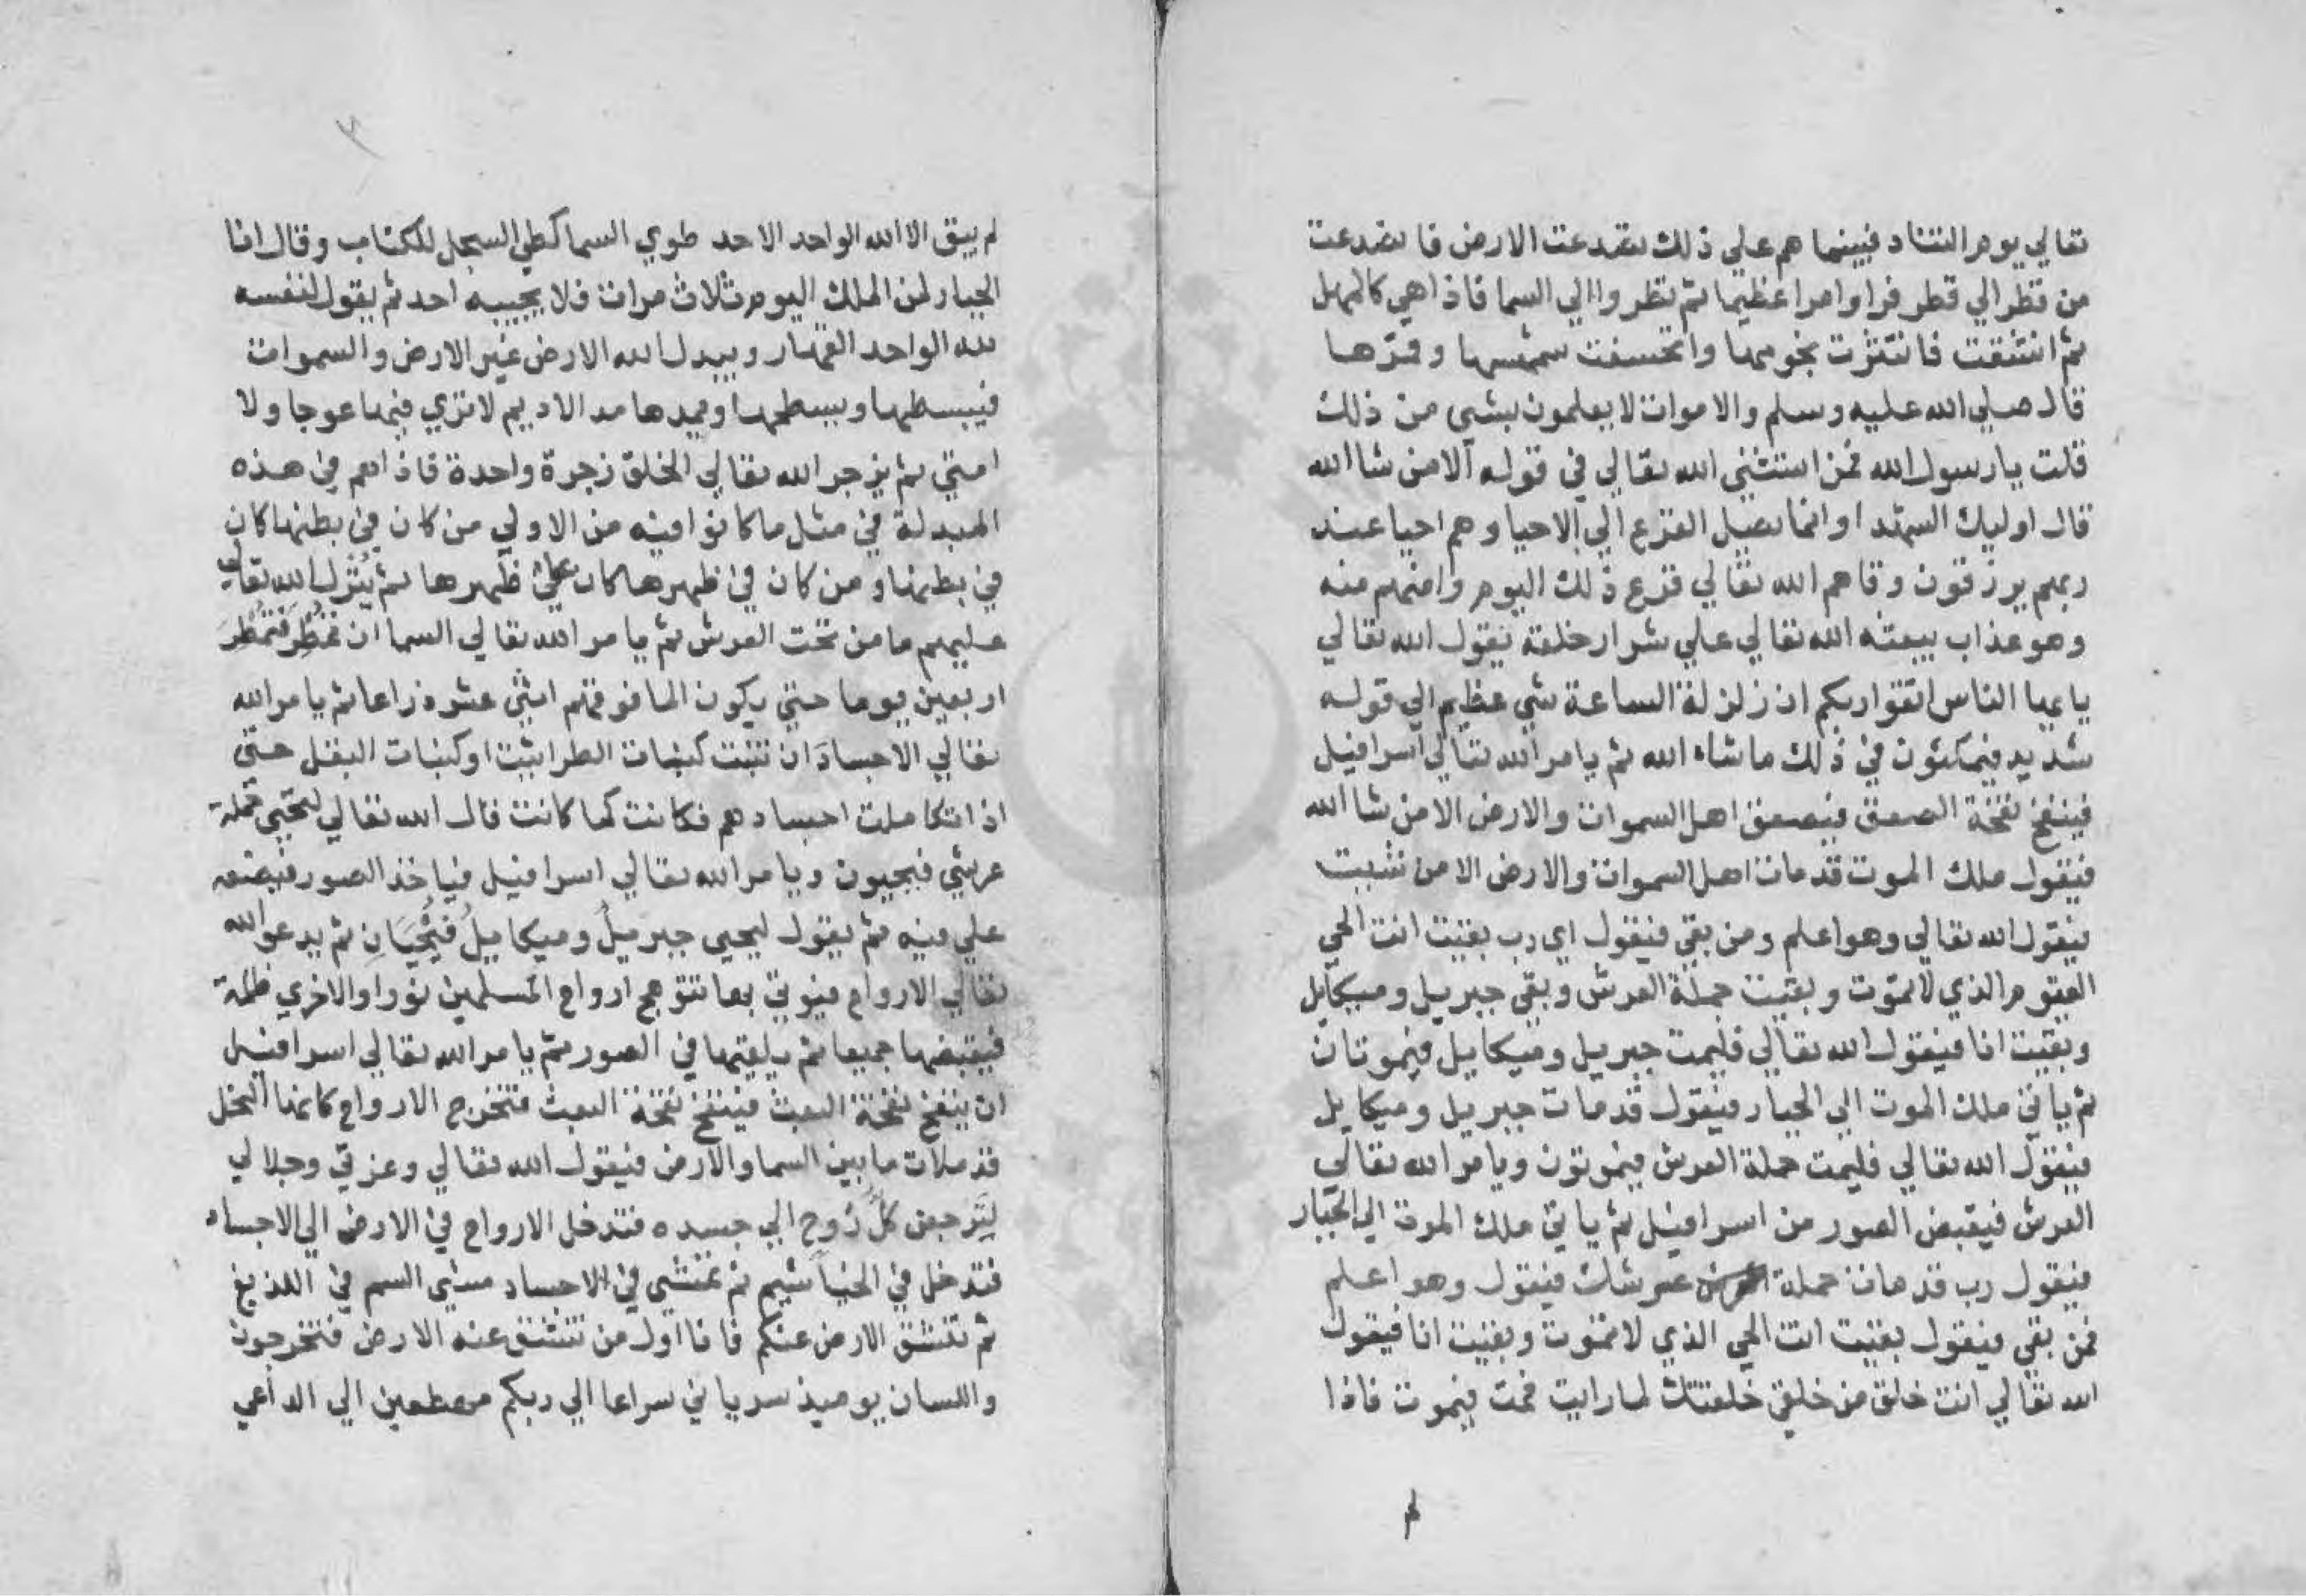 تعالي يوم التناد فبينما هم علي ذلك تصدعت الارض فانصدعت
من قطر الي قطر فراوا امرا عظيما ثم نظروا الي السما فاذا هي كالمهل
ثم انشقت فانتثرت نجومها وانخسفت شمسها وقمرها
قال صلي الله عليه وسلم والاموات لا يعلمون بشي من ذلك
قلت يا رسول الله فمن استثني الله تعالي في قوله الا من شا الله
قال اوليك الشهدا وانما يصل الفزع الي الاحيا وهم احيا عند
ربهم يرزقون وقاهم الله تعالي فزع ذلك اليوم وامنهم منه
وهو عذاب يبعثه الله تعالي علي شرار خلقه يقول الله تعالي
يا ايها الناس اتقوا ربكم ان زلزلة الساعة شي عظيم الي قوله
شديد فيمكثون في ذلك ما شاء الله ثم يامر الله تعالي اسرافيل
فينفخ نفخة الصعق فيصعق اهل السموات والارض الا من شا الله
فيقول ملك الموت قد مات اهل السموات والارض الا من شيت
فيقول الله تعالي وهو اعلم ومن بقي فيقول اي رب بقيت انت الحي
القيوم الذي لا تموت وبقيت حملة العرش وبقي جبريل وميكايل
وبقيت انا فيقول الله تعالي فليمت جبريل وميكايل فيموتان
ثم ياتي ملك الموت الي الجبار فيقول قد مات جبريل وميكايل
فيقول الله تعالي فليمت حملة العرش فيموتون ويامر الله تعالي
العرش فيقبض الصور من اسرافيل ثم ياتي ملك الموت الي الجبار
فيقول رب قد مات حملة عرشك فيقول وهو اعلم
فمن بقي فيقول بقيت انت الحي الذي لا تموت وبقيت انا فيقول
الله تعالي انت خلق من خلقي خلقتك لما رايت فمت فيموت فاذا
لم
لم يبق الا الله الواحد الاحد طوي السما كطي السجل للكتاب وقال انا
الجبار لمن الملك اليوم ثلاث مرات فلا يجيبه احد ثم يقول لنفسه
لله الواحد القهار ويبدل الله الارض غير الارض والسموات
فيبسطها ويسطحها ويمدها مد الاديم لا تري فيها عوجا ولا
امتي ثم يزجر الله تعالي الخلق زجرة واحدة فاذا هم في هذه
المبدلة في مثل ما كانوا فيه من الاولي من كان في بطنها كان
في بطنها ومن كان في ظهرها كان علي ظهرها ثم يُنزل الله تعالي
عليهم ما من تحت العرش ثم يامر الله تعالي السما ان تمطر فتمطر
اربعين يوما حتي يكون الما فوقهم اثني عشر ذراعا ثم يامر الله
تعالي الاجساد ان تنبت كنبات الطراثيث او كنبات البقل حتي
اذا تكاملت اجسادهم فكانت كما كانت قال الله تعالي ليحيي حملة
عرشي فيحيون ويامر الله تعالي اسرافيل فياخذ الصور فيضعه
علي فيه ثم يقول ليحيي جبريلُ وميكايلُ فيُحْيَيَانِ ثم يدعو الله
تعالي الارواح فيوتي بها تتوهج ارواح المسلمين نورا والاخري ظلمة
فيقبضها جميعا ثم يلقيها في الصور ثم يامر الله تعالي اسرافيل
ان ينفخ نفخة البعث فينفخ نفخة البعث فتخرج الارواح كانها النحل
قد ملات ما بين السما والارض فيقول الله تعالي وعزتي وجلالي
لَيَرجعن كلُّ رُوحٍ الي جسده فتدخل الارواح في الارض الي الاجساد
فتدخل في الخياشيم ثم تمشي في الاجساد مشي السم في اللديغ
ثم تنشق الارض عنكم فانا اول من تنشق عنه الارض فتخرجون
واللسان يوميذ سرياني سراعا الي ربكم مهطعين الي الداعي